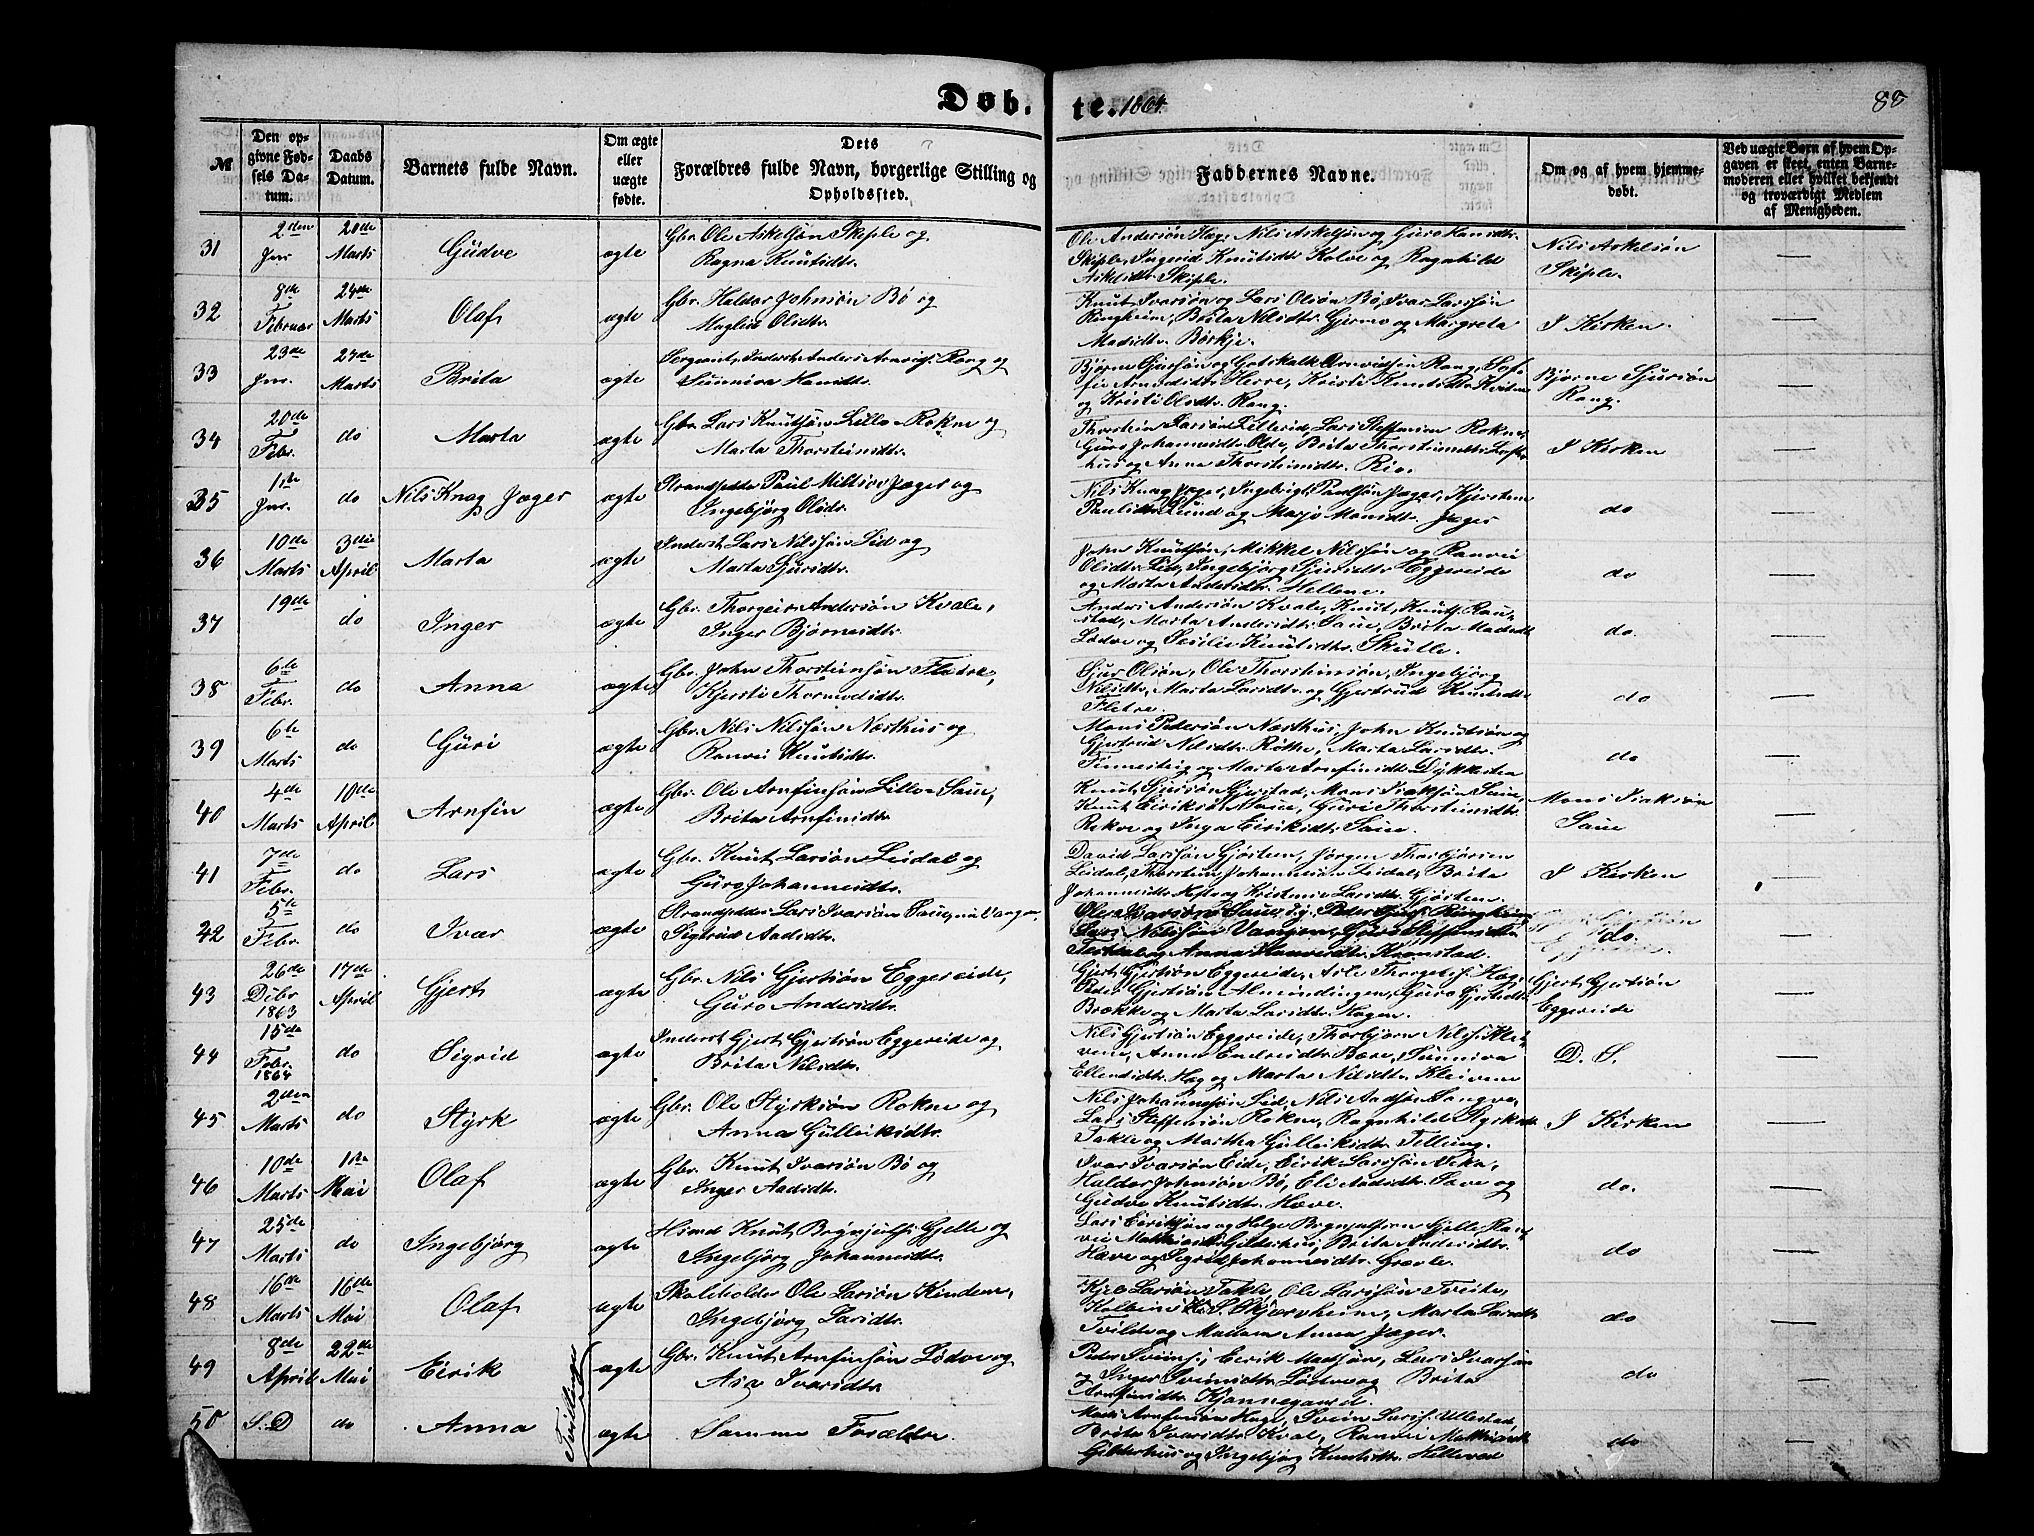 Døb.
te. 1864.
88
№
Den opgivne Fødsels Datum.
Daabs Datum.
Barnets fulde Navn.
Om ægte eller uægte fødte.
Dets Forældres fulde Navn, borgerlige Stilling og Opholdssted.
Faddernes Navne.
Om og af hvem hjemmedøbt.
Ved uægte Børn af hvem Opgaven er skeet, enten Barnemoderen eller hvilket bekjendt og troværdigt Medlem af Menigheden.
31 2den Jnr. 20de Marts Gudve ægte Gbr. Ole Askelsøn Skiple og Ragna Knutsdtr. Ole Andersøn Hag, Nils Askelsøn og Guro Hansdtr. Skiple, Ingerid Knutsdtr. Kolve og Ragnhild Askelsdtr. Skiple. Nils Askelsøn Skiple. —
32 8de Februar 24de Marts Olaf ægte Gbr. Haldor Johnsøn Bø og Maglis Olsdtr. Knut Ivarsøn og Lars Olsøn Bø, Ivar Larssøn Ringheim, Brita Nilsdtr. Gjerme og Margreta Madsdtr. Børkje. I Kirken. —
33 23de Jnr. 27de Marts Brita ægte Sergeant, Inderst Anders Arnvids. Rong og Sunniva Hansdtr. Bjørne Sjursøn og Gotskalk Arnvidsen Rong, Kristi Knutsdtr. og Kristi Olsdtr. Rong. Bjørne Sjursøn Rong. —
34 20de Febr. do Marta ægte Gbr. Lars Knutsøn Lille-Rokne og Marta Thorsteinsdtr. Thorstein Larsøn Lillerid, Lars Steffensen Rokne, Guro Johannesdtr. Olde, Brita Thorsteinsdtr. Lofthus og Anna Thorsteinsdtr. Rio. I Kirken —
35 1ste Jnr. do Nils Knag Jæger ægte Strandsidder Paul Jæger og Ingebjørg Olsdr. Nils Knag Jæger, Ingebrigt Paulsøn Jæger, Kjersten Paulsdtr. Lund og Marjo Monsdtr. Jæger do —
36 10de Marts 3die April Marta ægte Inderst Lars Nilssøn Lid og Marta Sjursdtr. John Knudsøn, Mikkel Nilssøn og Ranvei Olsdtr. Lid, Ingebjørg Sjursdtr. Eggereide og Marta Andersdtr. Hellene. do —
37 19de do Inger ægte Gbr. Thorgeir Andersøn Kvale, Inger Bjørnesdtr. Anders Andersøn Kvale, Knut Knuts. Ronstad, Marta Andersdtr. Saue, Brita Madsdtr. Lødve og Sesilie Knutsdtr. Skulle. do. —
38 6te Febr. do Anna ægte Gbr. John Thorsteinsøn Fletre, Kjersti Thormodsdtr. Sjur Olsøn, Ole Thorsteinsøn, Ingebjørg Nilsdtr., Marta Larsdtr. og Gjertrud Knutsdtr. Fletre. do —
39 6te Marts do Guri ægte Gbr. Nils Nilssøn Næsthus og Ranvei Knutsdtr. Mons Pedersøn Næsthus, John Knudsøn og Gjertrud Nilsdtr. Røthe, Marta Larsdtr. Finnesteig og Marta Arnfinsdtr. Dykkesten do —
40 4de Marts 10de April Arnfin ægte Gbr. Ole Arnfinsøn Lille-Saue, Brita Arnfinsdtr. Knut Sjursøn Gjerstad, Mons Isaksøn Saue, Knut Eiriksøn Saue, Guri Thorsteinsdtr. Rekve og Inga Eiriksdtr. Saue. Mons Isaksøn Saue —
41 7de Febr. do Lars ægte Gbr. Knut Larsøn Leidal og Guro Johannesdtr. David Larssøn Gjøstein, Jørgen Thorbjørnsen Leidal, Thorstein Johannessøn Leidal, Brita Johannesdtr. og Kristense Larsdtr. Gjøsten. I Kirken —
42 5te Febr. do Ivar ægte Strandsidder Lars Ivarsøn Saue, nu Vangen, Sigtrud Aadsdtr. Ole Ivarsøn Saue, Peder Ringheim, Lars Nilssøn Vangen, Guro Steffensdtr. og Anna Hansdtr. Kronstad. do. —
43 26de Dcbr 1863 17de April Gjert ægte Gbr. Nils Gjertsøn Eggereide, Guro Andersdtr. Gjert Gjertsøn Eggereide, Asle Thorgels. Hæg, Peder Gjertsøn Almendingen, Guro Gjertsdtr. Brække og Marta Larsdtr. Hagen. Gjert Gjertsøn Eggereide —
44 15de Febr. 1864 do Sigrid ægte Inderst Gjert Gjertsøn Eggereide og Brita Nilsdtr. Nils Gjertsøn Eggereide, Thorbjørn Nilss. Kleivene, Anna Endresdtr. Bære, Sunniva Ellendsdtr. Hæg og Marta Nilsdtr. Kleivene D. S. —
45 2den Marts do Styrk ægte Gbr. Ole Styrksøn Rokne og Anna Gulleiksdtr. Nils Johannesøn Lid, Nils Aadsøn Songve, Lars Steffensøn Rokne, Ragnhild Styrksdtr. Takle og Martha Gulleiksdtr. Tellung. I Kirken —
46 10de Marts 1ste Mai Olaf ægte Gbr. Knut Ivarsøn Bø og Inger Aadsdtr. Ivar Ivarsøn Eide, Eirik Larssøn Væka, Haldor Johnsøn Bø, Eli Aadsdtr. Save og Gudve Knutsdtr. Hæve. do. —
47 25de Marts do Ingebjørg ægte Hismd Knut Brynjulfs. Gjelle og Ingebjørg Johannesdtr. Lars Eiriksøn og Helge Brynjulfsen Gjelle, Ranvei Mathiasdtr. Gilderhus, Brita Andersdtr. Hæve og Sigrid Johannesdtr. Græe. do —
48 16de Marts 16de Mai Olaf ægte Skoleholder Ole Larsøn Kinden, Ingebjørg Larsdtr. Kjel Larsøn Takle, Ole Larssøn Tveite, Kolbein K. S. Skjerveheim, Marta Larsdtr. Tvilde og Madam Anna Jæger. do —
49 8de April 22de Mai Eirik Tvillinger ægte Gbr. Knut Arnfinsøn Lødve og Asa Ivarsdtr. Peder Sveins., Eirik Madsøn, Lars Ivarsøn og Inger Sveinsdtr. Lødve og Brita Arnfinsdtr. Kjønnegaard. do —
50 S. D do Anna ægte Samme Forældre. Mads Arnfinsøn Hage, Svein Larss. Ullestad, Brita Ivarsdtr. Kval, Ranvei Mathiasdtr. Gilderhus og Ingebjørg Knutsdtr. Hellesvad do —